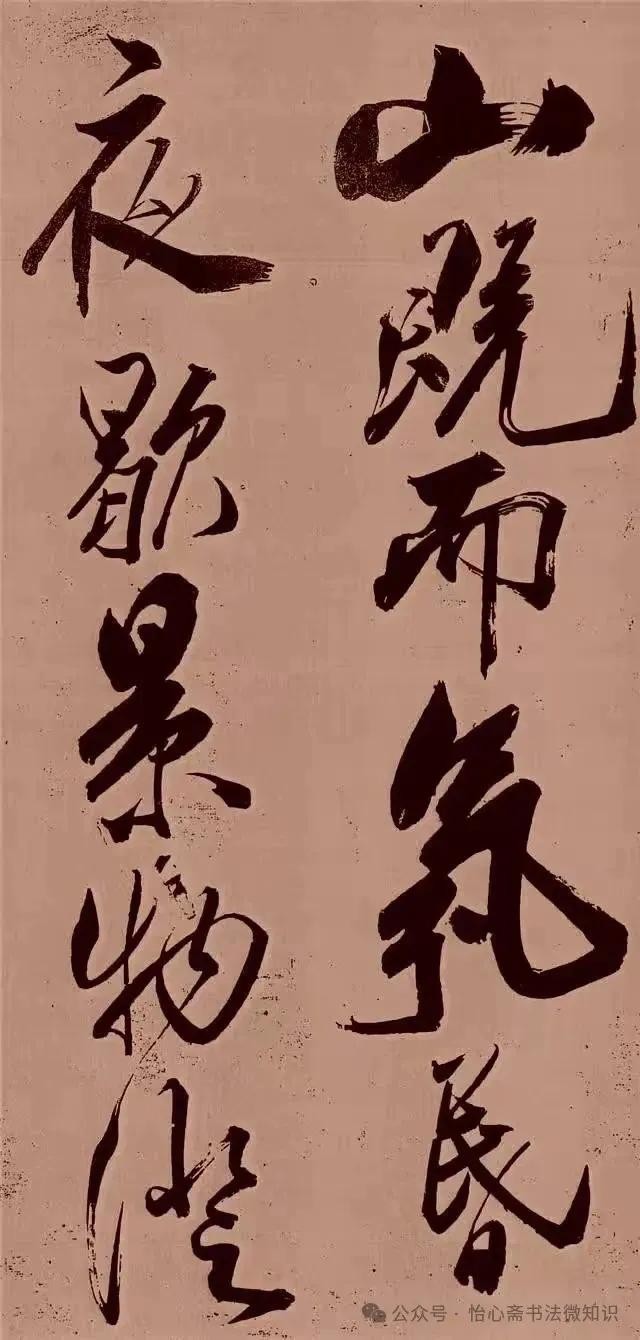 山既而氛昬
夜歇景物澄
公众号·怡心斋书法微知识